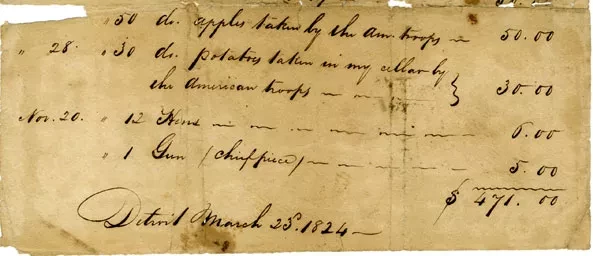 " 50 do. apples taken by the Am. troops — 50.00
" 28. " 30 do. potatoes taken in my cellar by
the American troops — — — } 30.00
Nov. 20. " 12 Hens — — — — — — 6.00
" 1 Gun (chief piece) — — — — — 5.00
$ 471.00
Detroit March 25. 1824 —